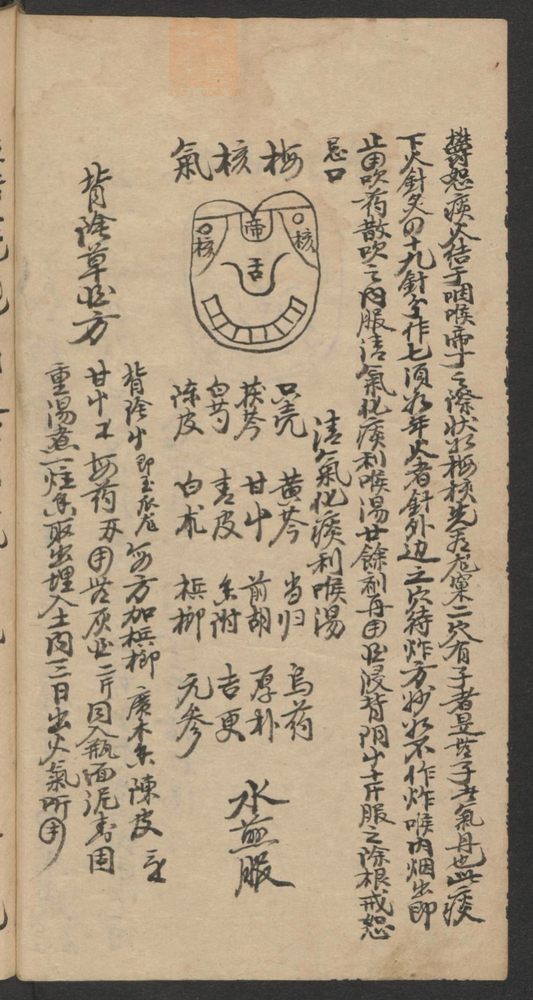 鬱怒痰火結于咽喉帝丁之際狀如梅核先看左右窠二穴有子者是無子者氣丹也此痰
下火針灸四十九針令作七須如年火者針外边之穴待炸方妙如不作炸喉內烟出即
止用吹药散吹之內服清氣化痰利喉湯廿餘剂再用酒浸背阴草十斤服之除根戒怒
忌口
梅核氣
核 帝 核
舌
清氣化痰利喉湯
只壳 黄芩 当归 烏药
茯苓 甘草 前胡 厚朴
白芍 青皮 香附 吉更
陳皮 白朮 梹榔 元參
水煎服
背陰草酒方
背陰草 即 方加梹榔 廣木香 陳皮
甘草 每药 用 灰酒二斤同入瓶面泥 固
重湯煮一炷香取出埋入土內三日出火氣所用